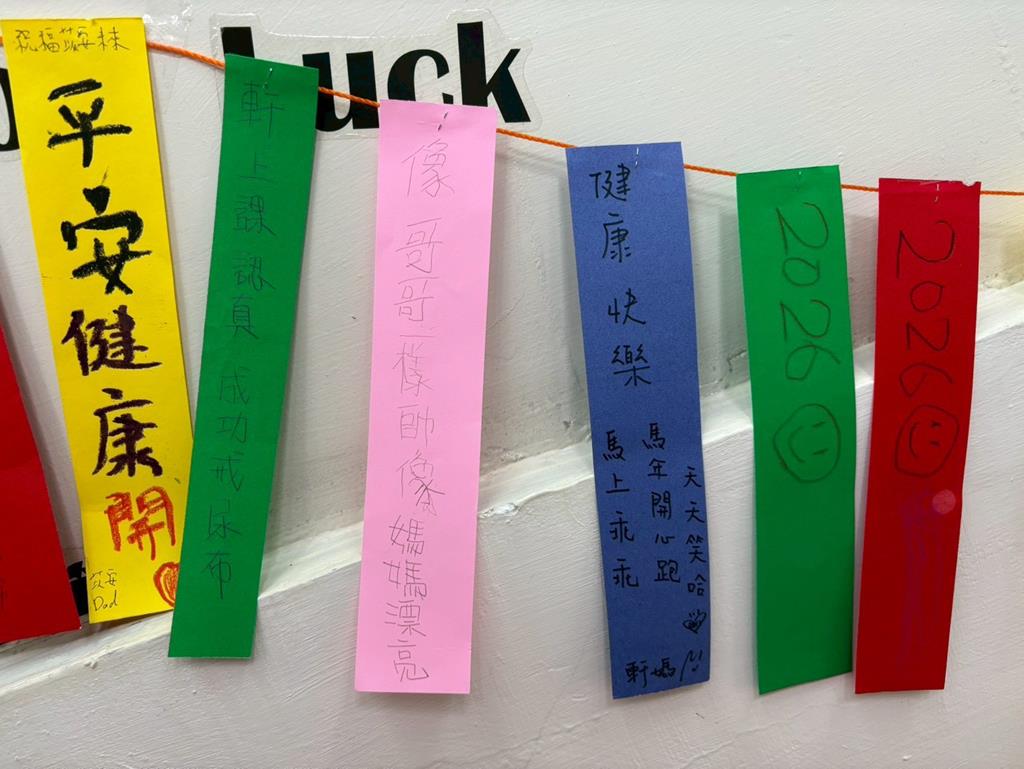 luck
祝福苡安棶
平安健康開
苡安
Dad
軒上課認真成功戒尿布
像哥哥一樣帥像媽媽漂亮
健康快樂
天天笑哈哈
馬年開心跑
馬上乖乖
軒媽
2026
2026